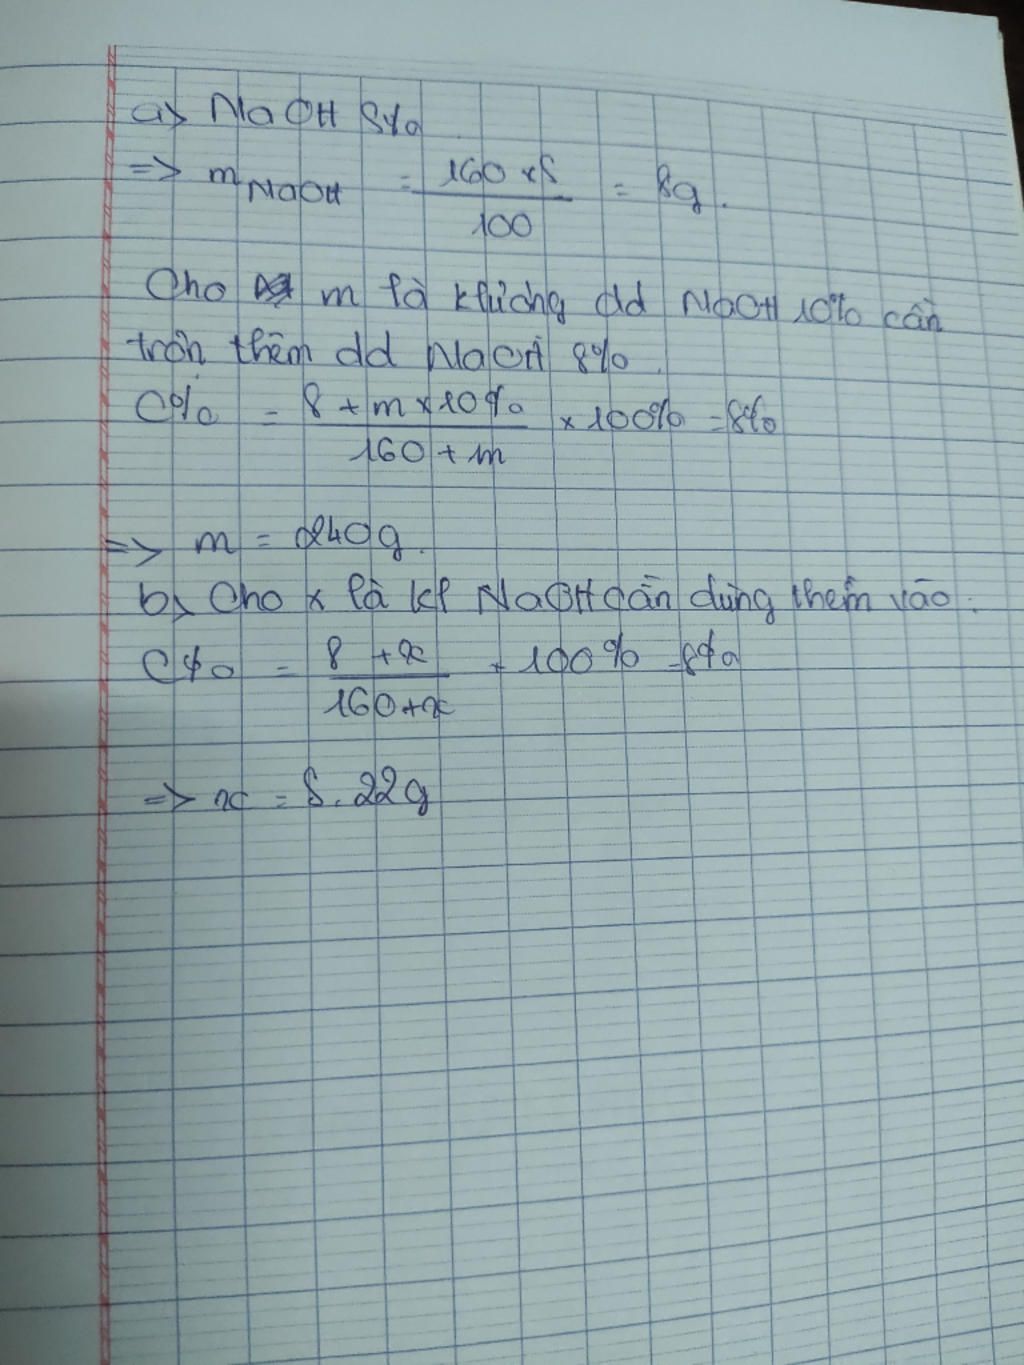 a) NaOH 5%
=> m NaOH = 160 x 5 / 100 = 8g.
Cho m là klượng dd NaOH 10% cần
trộn thêm dd NaOH 8%.
C% = 8 + m x 10% / 160 + m x 100% = 8%
=> m = 240g.
b, Cho x là kl NaOH cần dùng thêm vào:
C% = 8 + x / 160 + x . 100% = 8%
=> x = 5.22g